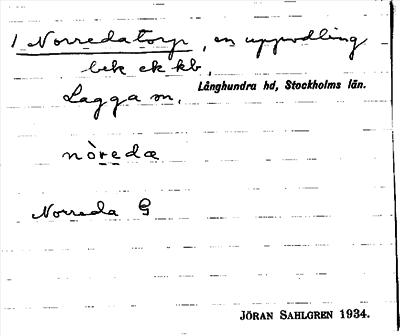 1 Norredatorp, en uppodling
bek ek kb,
Lagga sn, Långhundra hd, Stockholms län.
nòredæ
Norreda G
JÖRAN SAHLGREN 1934.